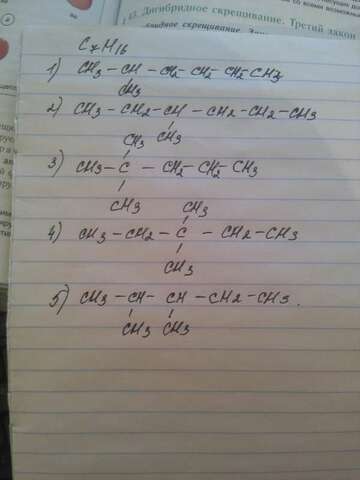 1.3. Дигибридное скрещивание. Третий закон
C7H16
1) CH3 – CH – CH2 – CH2 – CH2 – CH3
CH3
2) CH3 – CH2 – CH – CH2 – CH2 – CH3
CH3
CH3
3) CH3 – C – CH2 – CH2 – CH3
CH3
CH3
4) CH3 – CH2 – C – CH2 – CH3
CH3
5) CH3 – CH – CH – CH2 – CH3.
CH3 CH3